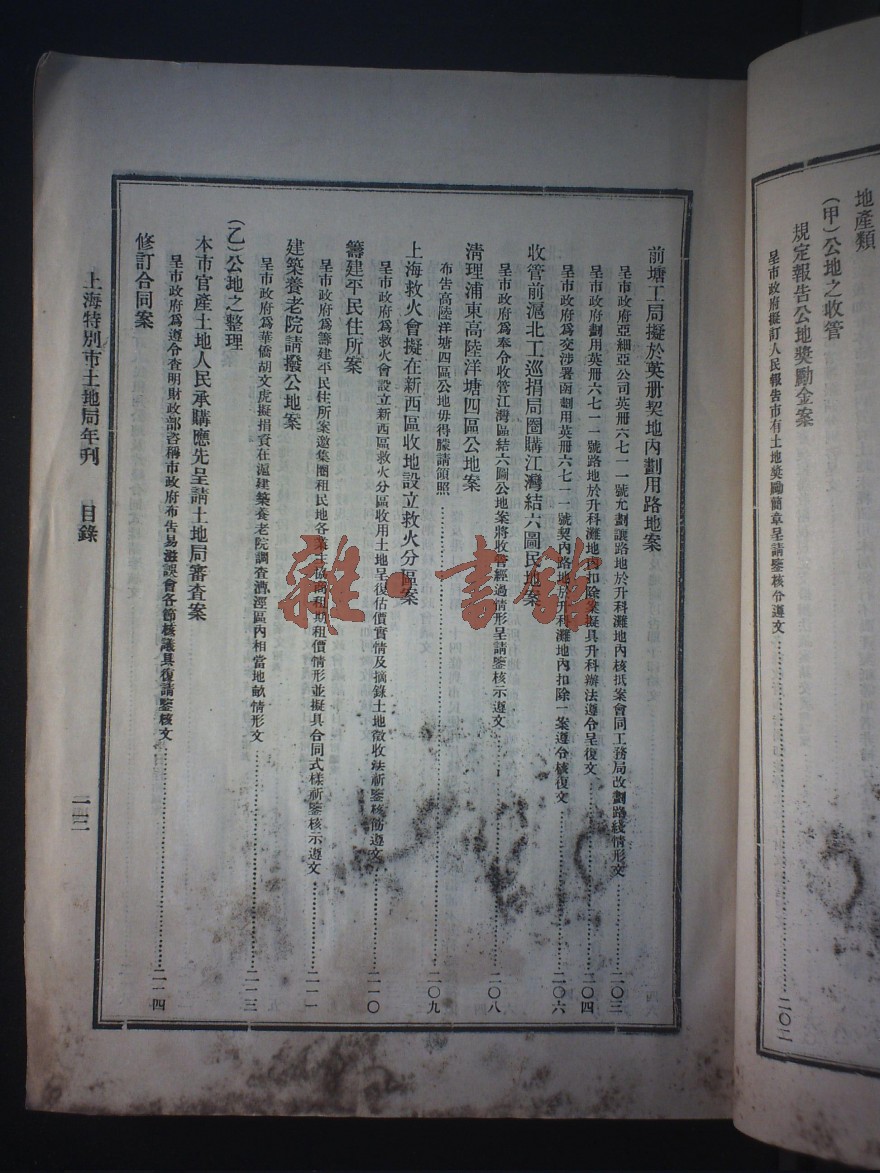 地產類
(甲)公地之收管
規定報告公地獎勵金案
呈市政府擬訂人民報告市有土地獎勵簡章呈請鑒核令遵文………二〇二
前塘工局擬於英册契地內劃用路地案
呈市政府亞細亞公司英册六七一一號允劃讓路地於升科灘地內核抵案會同工務局改劃路綫情形文………二〇三
呈市政府劃用英册六七一一號路地於升科灘地內扣除案擬具升科辦法遵令呈復文………二〇四
呈市政府為交涉署函劃用英册六七一一號契內路地於升科灘地內扣除一案遵令核復文………二〇六
收管前滬北工巡捐局圈購江灣結六圖民地案
呈市政府為奉令收管江灣區結六圖公地案將收管經過情形呈請鑒核示遵文………二〇八
清理浦東高陸洋塘四區公地案
布告高陸洋塘四區公地毋得朦請領照………二〇九
上海救火會擬在新西區收地設立救火分區案
呈市政府為救火會設立新西區救火分區收用土地呈復估價實情及摘錄土地徵收法祈鑒核飭遵文………二一〇
籌建平民住所案
呈市政府為籌建平民住所案邀集圈租民地各業主協商租期租價情形並擬具合同式樣祈鑒核示遵文………二一一
建築養老院請撥公地案
呈市政府為華僑胡文虎擬捐資在滬建築養老院調查漕涇區內相當地畝情形文………二一三
(乙)公地之整理
本市官產土地人民承購應先呈請土地局審查案
呈市政府為遵令查明財政部咨稱市政府布告易滋誤會各節核議具復請鑒核文………二一四
修訂合同案
上海特別市土地局年刊 目錄
二三
雜·書館